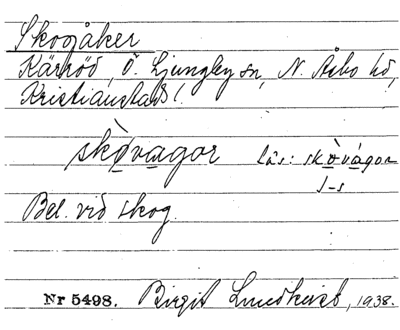 Skogåker
Kärröd, Ö. Ljungby sn, N. Åsbo hd,
Kristianstads l.
skòvagor läs: skòvágor
1-s
Bel. vid skog.
Nr 5498. Birgit Lundkvist, 1938.